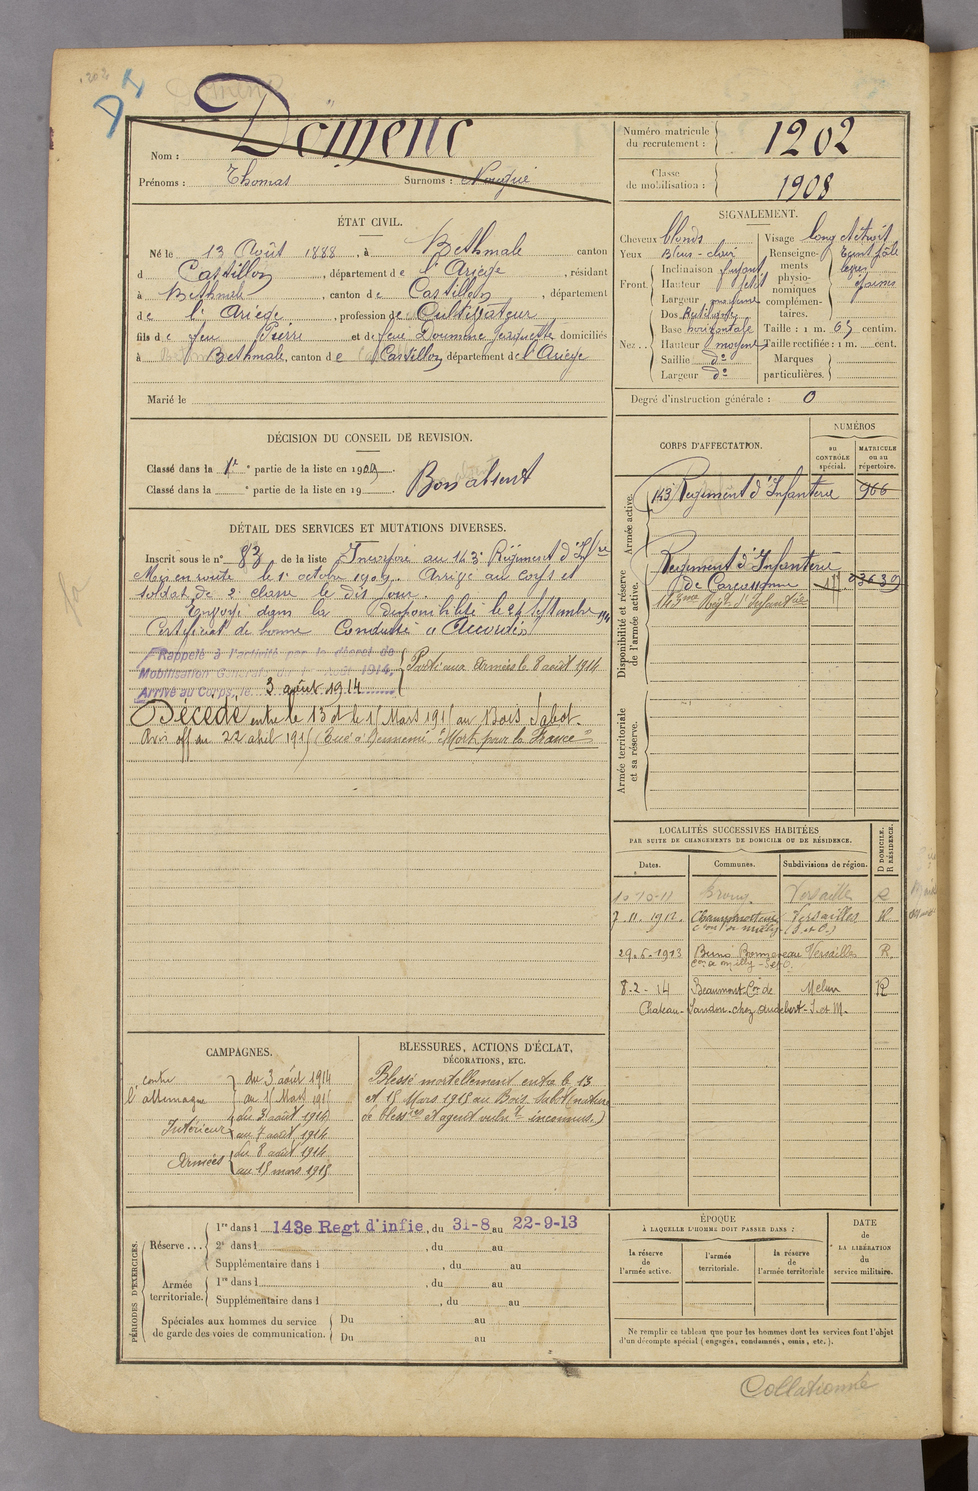 1202
Domenc
Nom :
Prénoms : Thomas Surnoms : Nougué
Numéro matricule du recrutement : 1202
Classe de mobilisation : 1908
ÉTAT CIVIL.
Né le 13 Août 1888, à Bethmale canton
d Castillon, département de l'Ariège, résidant
à Bethmale, canton de Castillon, département
de l'Ariège, profession de Cultivateur
fils de feu Pierre et de feue Doumenc Jacquette domiciliés
à Bethmale, canton de Castillon département de l'Ariège
Marié le
SIGNALEMENT.
Cheveux blonds
Yeux Bleus-clair
Front Inclinaison fuyant
Hauteur petit
Largeur moyenne
Nez Dos Rectiligne
Base horizontale
Hauteur moyenne
Saillie do
Largeur do
Visage long étroit
Renseignements physionomiques complémentaires. Teint pâle
lèvres
Taille : 1 m. 65 centim.
Taille rectifiée : 1 m. cent.
Marques particulières.
Degré d'instruction générale : 0
DÉCISION DU CONSEIL DE REVISION.
Classé dans la 1e partie de la liste en 1909.
Classé dans la e partie de la liste en 19
Bon absent
CORPS D'AFFECTATION.
NUMÉROS
au CONTRÔLE spécial.
MATRICULE ou au répertoire.
Armée active.
143 Régiment d'Infanterie 966
Disponibilité et réserve de l'armée active.
Régiment d'Infanterie
de Carcassonne 03639
143ème Régt d'Infanterie
Armée territoriale et sa réserve.
DÉTAIL DES SERVICES ET MUTATIONS DIVERSES.
Inscrit sous le n° 83 de la liste Incorporé au 143e Régiment d'Infrie
Mis en route le 1er octobre 1909. Arrivé au corps et
soldat de 2e classe le dit jour.
Envoyé dans la disponibilité le 24 septembre 1911
Certificat de bonne Conduite "Accordé"
Rappelé à l'activité par le décret de
Mobilisation Générale du 1er Août 1914.
Arrivé au Corps le 3 août 1914
Parti aux Armées le 8 août 1914
Décédé entre le 13 et le 15 Mars 1915 au Bois Sabot.
Avis off. du 22 avril 1915 (Tué à l'ennemi "Mort pour la France"
LOCALITÉS SUCCESSIVES HABITÉES
PAR SUITE DE CHANGEMENTS DE DOMICILE OU DE RÉSIDENCE.
Dates. Communes. Subdivisions de région. D DOMICILE. R RÉSIDENCE.
10-10-11 Versailles R
7.11.1912. Versailles R
Con de Milly (S. et O.)
29.6.1913 Buno Bonnevaux Versailles R.
Con de Milly - S et O.
8.2-14 Beaumont Con de Melun R
Chateau-Landon chez Audebert - S. et M.
CAMPAGNES.
contre l'allemagne du 3 août 1914
au 15 Mars 1915
Intérieur du 3 août 1914
au 7 août 1914
Armées du 8 août 1914
au 15 mars 1915
BLESSURES, ACTIONS D'ÉCLAT,
DÉCORATIONS, ETC.
Blessé mortellement entre le 13
et 15 Mars 1915 au Bois Sabot (nature
de blesres et agent vulnt inconnus.)
PÉRIODES D'EXERCICES.
Réserve ... 1re dans l 143e Regt d'infie, du 31-8 au 22-9-13
2e dans l , du au
Supplémentaire dans l , du au
Armée territoriale. 1re dans l , du au
Supplémentaire dans l , du au
Spéciales aux hommes du service de garde des voies de communication. Du au
Du au
ÉPOQUE
À LAQUELLE L'HOMME DOIT PASSER DANS :
la réserve de l'armée active.
l'armée territoriale.
la réserve de l'armée territoriale
DATE DE LA LIBÉRATION du service militaire.
Ne remplir ce tableau que pour les hommes dont les services font l'objet
d'un décompte spécial (engagés, condamnés, omis, etc.).
Collationné